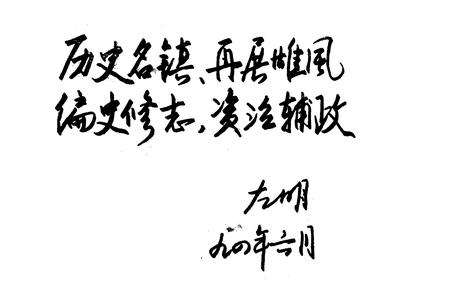 历史名镇、再展雄风
编史修志，资治辅政
左明
九四年六月